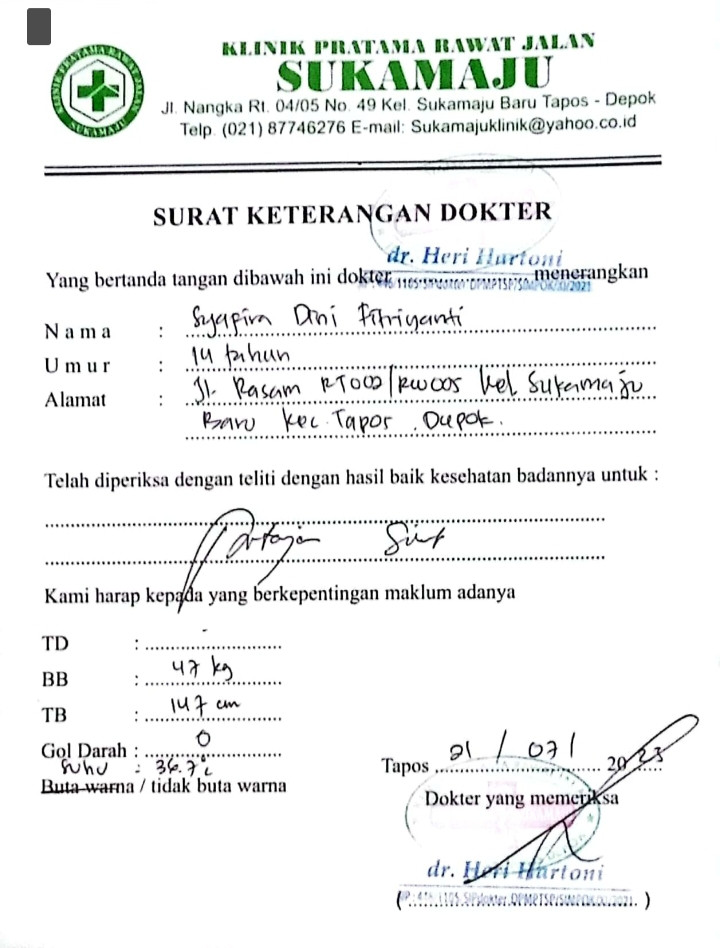 KLINIK PRATAMA RAWAT JALAN
SUKAMAJU
Jl. Nangka Rt. 04/05 No. 49 Kel. Sukamaju Baru Tapos - Depok
Telp. (021) 87746276 E-mail: Sukamajuklinik@yahoo.co.id
KLINIK PRATAMA RAWAT JALAN
SUKAMAJU
SURAT KETERANGAN DOKTER
dr. Heri Hartoni
Yang bertanda tangan dibawah ini dokter menerangkan
Nama : Syapira Dini Fitriyanti
Umur : 14 tahun
Alamat : Jl. Rasam RT002/RW005 Kel Sukamaju
Baru Kec. Tapos. Depok.
Telah diperiksa dengan teliti dengan hasil baik kesehatan badannya untuk :
Kami harap kepada yang berkepentingan maklum adanya
TD : -
BB : 47 kg
TB : 147 cm
Gol Darah : O
Suhu : 36.7°c
Buta warna / tidak buta warna
Tapos 21 / 07 / 2023
Dokter yang memeriksa
dr. Heri Hartoni